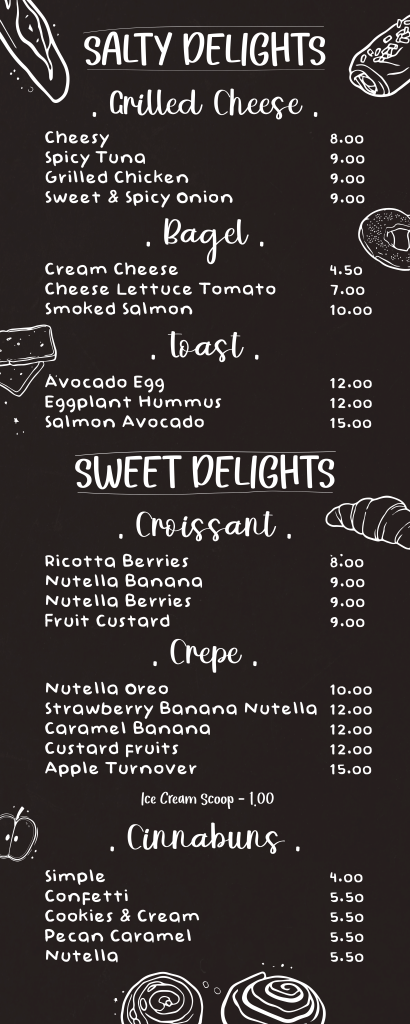 SALTY DELIGHTS
. Grilled Cheese .
Cheesy 8.00
Spicy Tuna 9.00
Grilled Chicken 9.00
Sweet & Spicy Onion 9.00
. Bagel .
Cream Cheese 4.50
Cheese Lettuce Tomato 7.00
Smoked Salmon 10.00
. Toast .
Avocado Egg 12.00
Eggplant Hummus 12.00
Salmon Avocado 15.00
SWEET DELIGHTS
. Croissant .
Ricotta Berries 8.00
Nutella Banana 9.00
Nutella Berries 9.00
Fruit Custard 9.00
. Crepe .
Nutella Oreo 10.00
Strawberry Banana Nutella 12.00
Caramel Banana 12.00
Custard Fruits 12.00
Apple Turnover 15.00
Ice Cream Scoop - 1.00
. Cinnabuns .
Simple 4.00
Confetti 5.50
Cookies & Cream 5.50
Pecan Caramel 5.50
Nutella 5.50